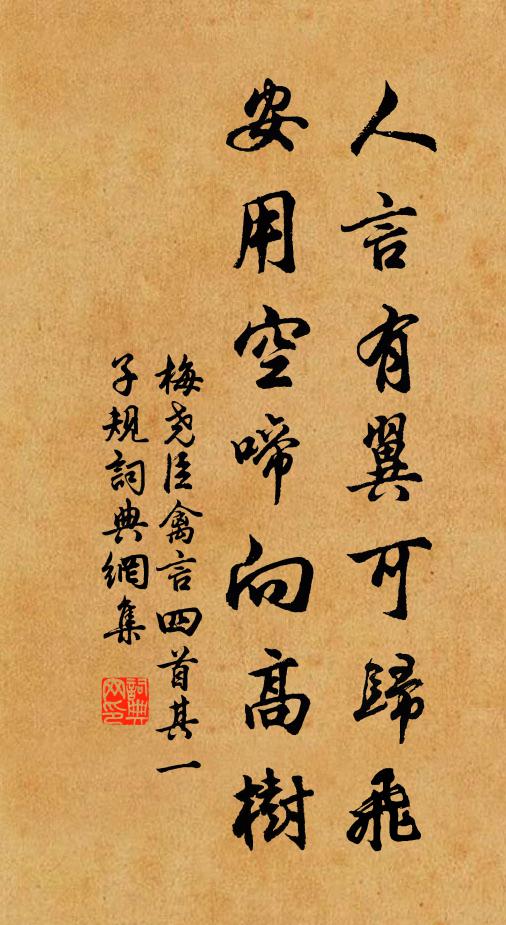 人言有翼可歸飛
安用空啼向高樹
梅堯臣禽言四首其一
子規詞典網集
詞典
網印